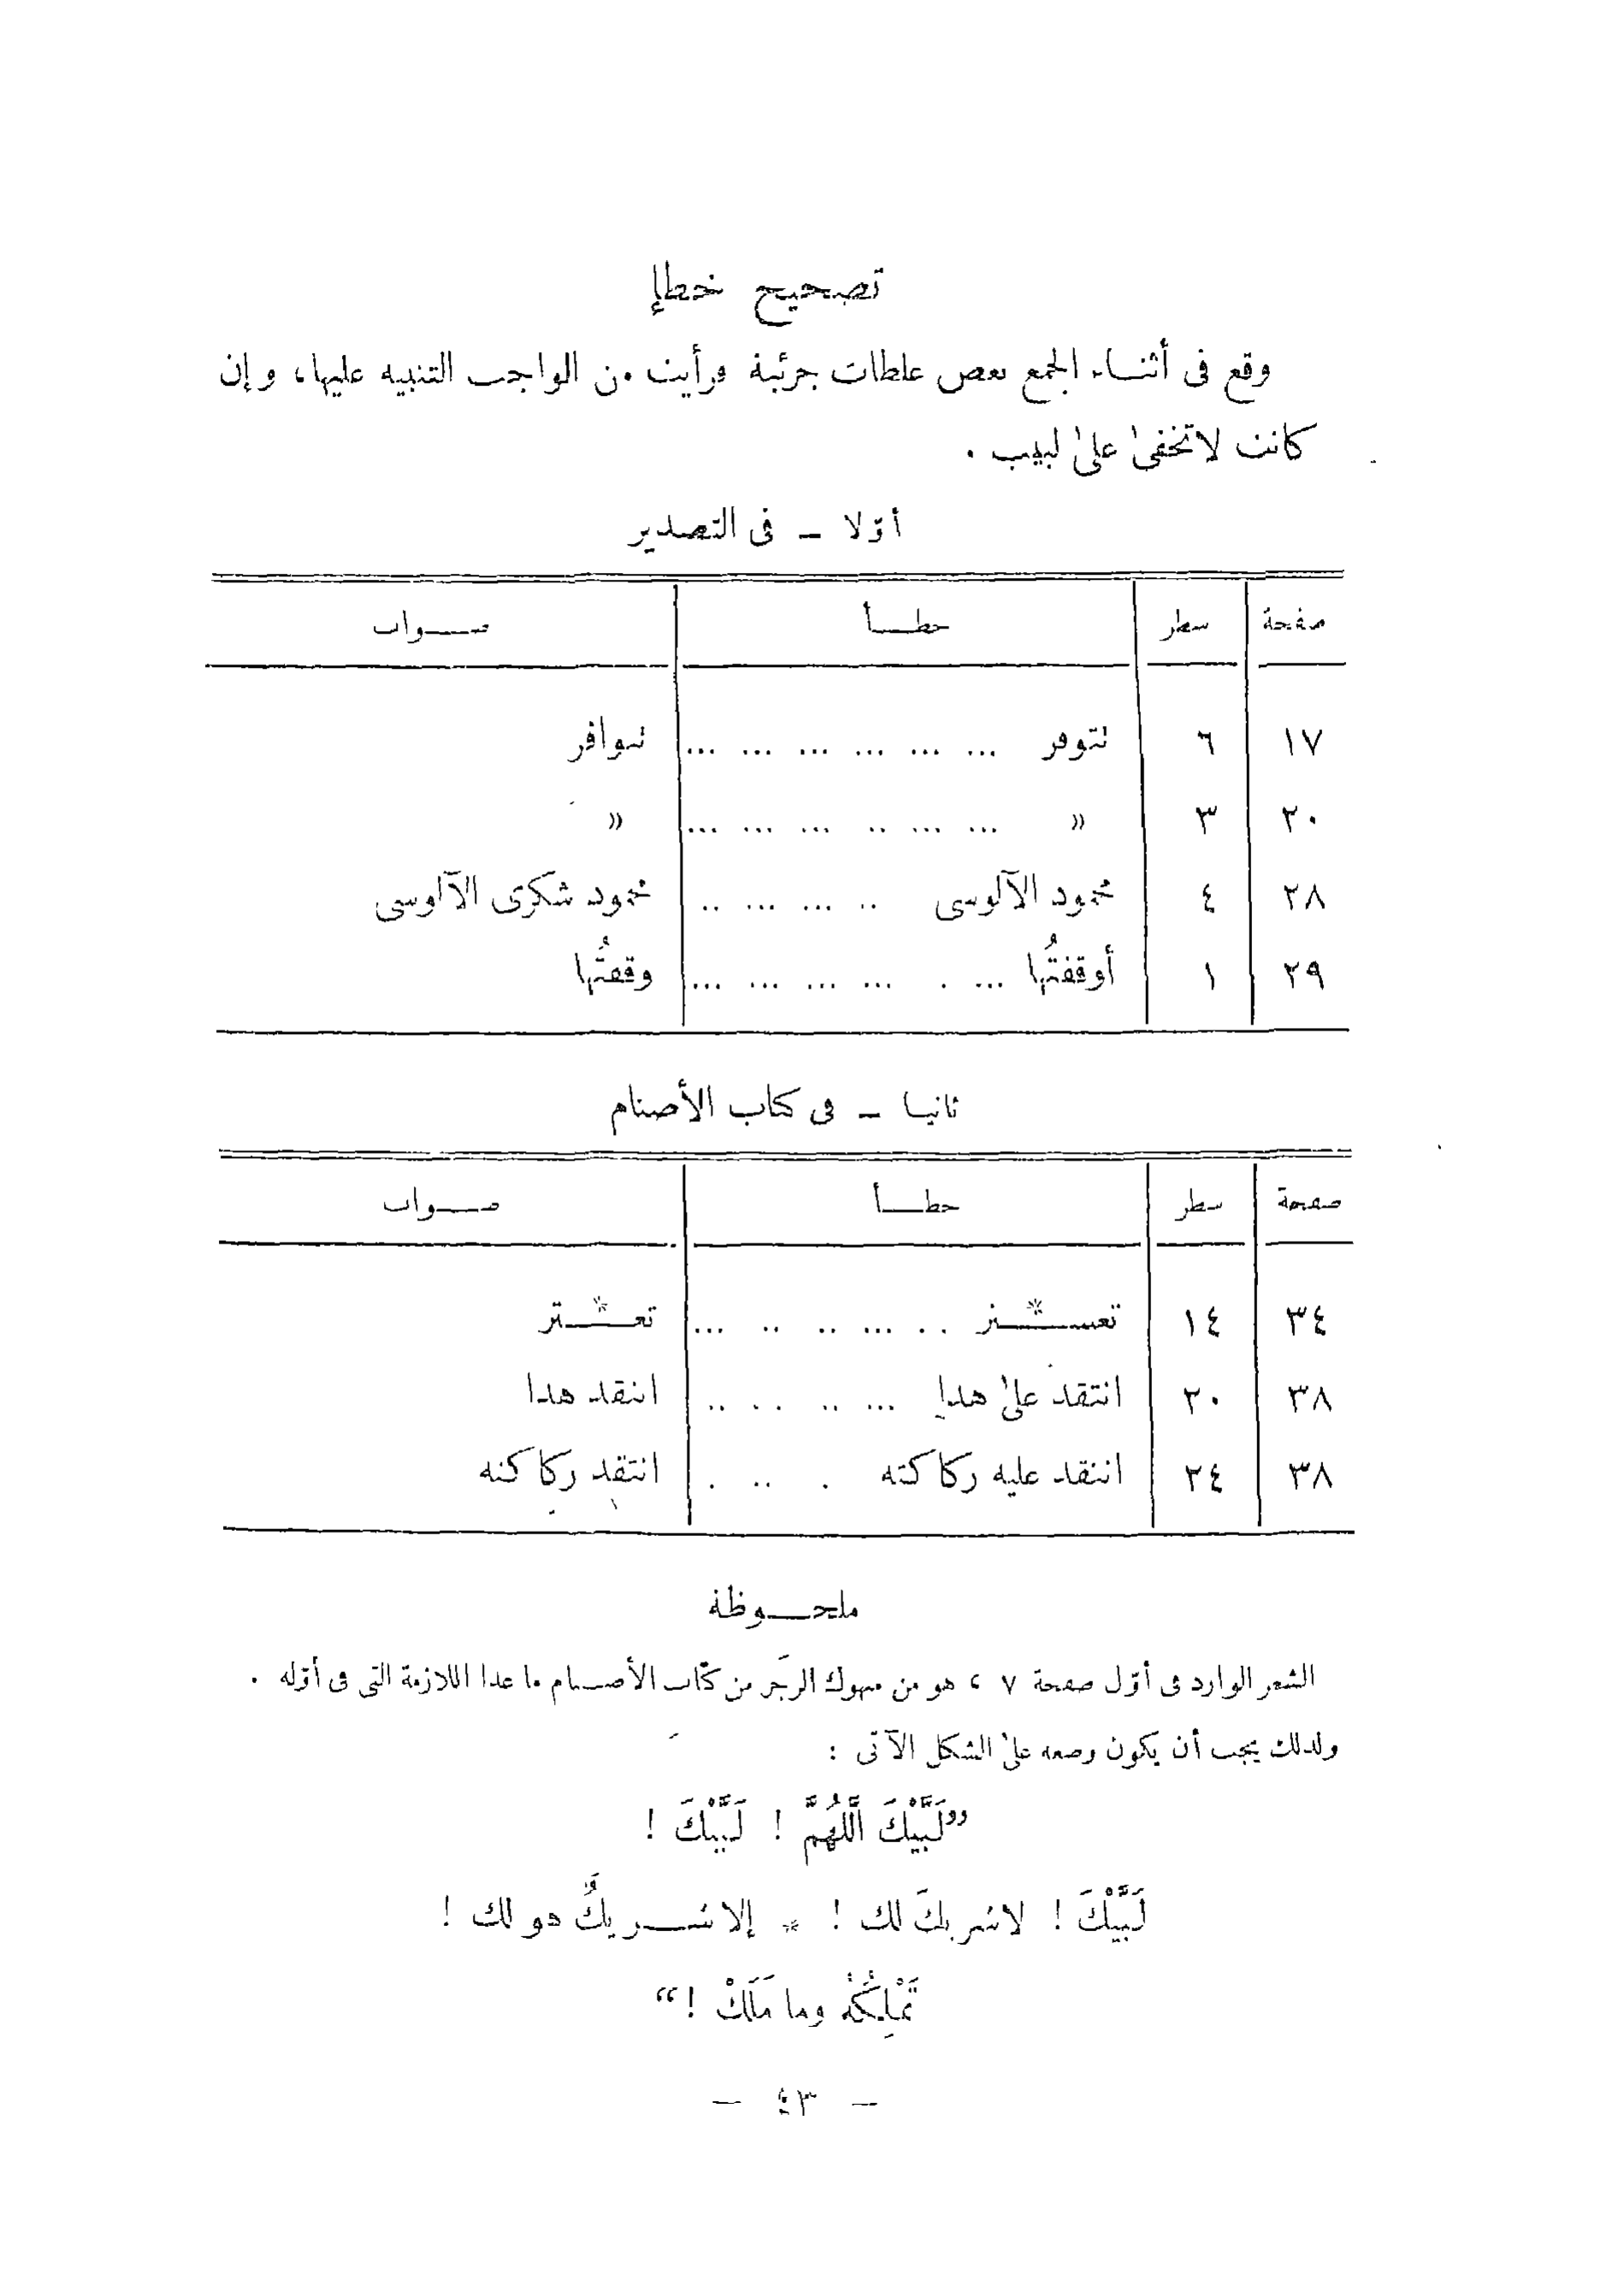 تصحيح خطإ
وقع فى أثناء الجمع بعض غلطات جزئية فرأيت من الواجب التنبيه عليها، و إن
كانت لاتخفىٰ علىٰ لبيب .
أوّلا — فى التصدير
صفحة سطر خطأ صواب
١٧ ٦ تتوفر ... ... ... ... ... ... تتوافر
٢٠ ٣ » ... ... .. ... ... ... »
٢٨ ٤ محمود الآلوسى .. ... ... .. محمود شكرى الآلوسى
٢٩ ١ أوقفتُها ... . ... ... ... ... وقفتُها
ثانيا — فى كتاب الأصنام
صفحة سطر خطأ صواب
٣٤ ١٤ تعســـتر . . ... .. .. ... تعـــتر
٣٨ ٢٠ انتقد علىٰ هذا ... .. . . .. انتقد هذا
٣٨ ٢٤ انتقد عليه ركاكته . .. . انتقد ركاكته
ملحوظة
الشعر الوارد فى أوّل صفحة ٧ ، هو من منهوك الرجَز من كتاب الأصنام ما عدا اللازمة التى فى أوّله .
ولذلك يجب أن يكون وضعه علىٰ الشكل الآتى :
”لَبَّيْكَ اَللّٰهُمَّ ! لَبَّيْكَ !
لَبَّيْكَ ! لاشريكَ لك ! * إلا شـــريكٌ هو لك !
تَمْلِكُهُ وما مَلَكْ !“
— ٤٣ —